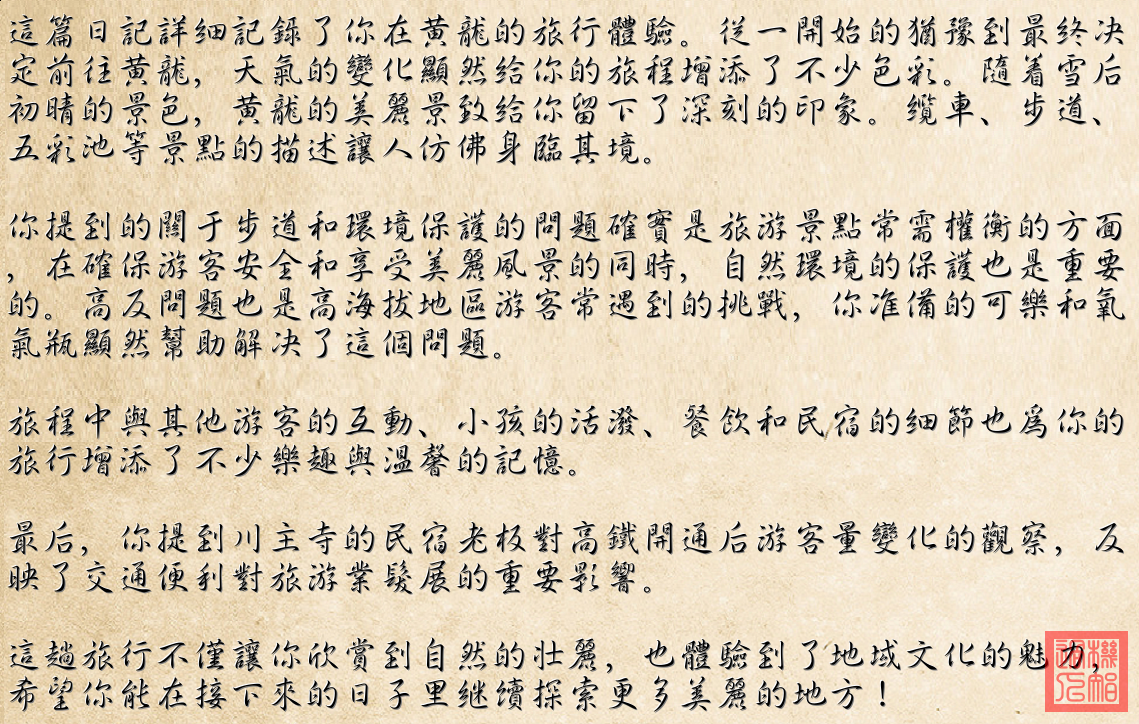 這篇日記詳細記錄了你在黄龍的旅行體驗。從一開始的猶豫到最終决
定前往黄龍，天氣的變化顯然給你的旅程增添了不少色彩。隨着雪后
初晴的景色，黄龍的美麗景致給你留下了深刻的印象。纜車、步道、
五彩池等景點的描述讓人仿佛身臨其境。
你提到的關于步道和環境保護的問題確實是旅游景點常需權衡的方面
，在確保游客安全和享受美麗風景的同時，自然環境的保護也是重要
的。高反問題也是高海拔地區游客常遇到的挑戰，你准備的可樂和氧
氣瓶顯然幫助解决了這個問題。
旅程中與其他游客的互動、小孩的活潑、餐飲和民宿的細節也爲你的
旅行增添了不少樂趣與溫馨的記憶。
最后，你提到川主寺的民宿老板對高鐵開通后游客量變化的觀察，反
映了交通便利對旅游業髮展的重要影響。
這趟旅行不僅讓你欣賞到自然的壯麗，也體驗到了地域文化的魅力，
希望你能在接下來的日子里继續探索更多美麗的地方！